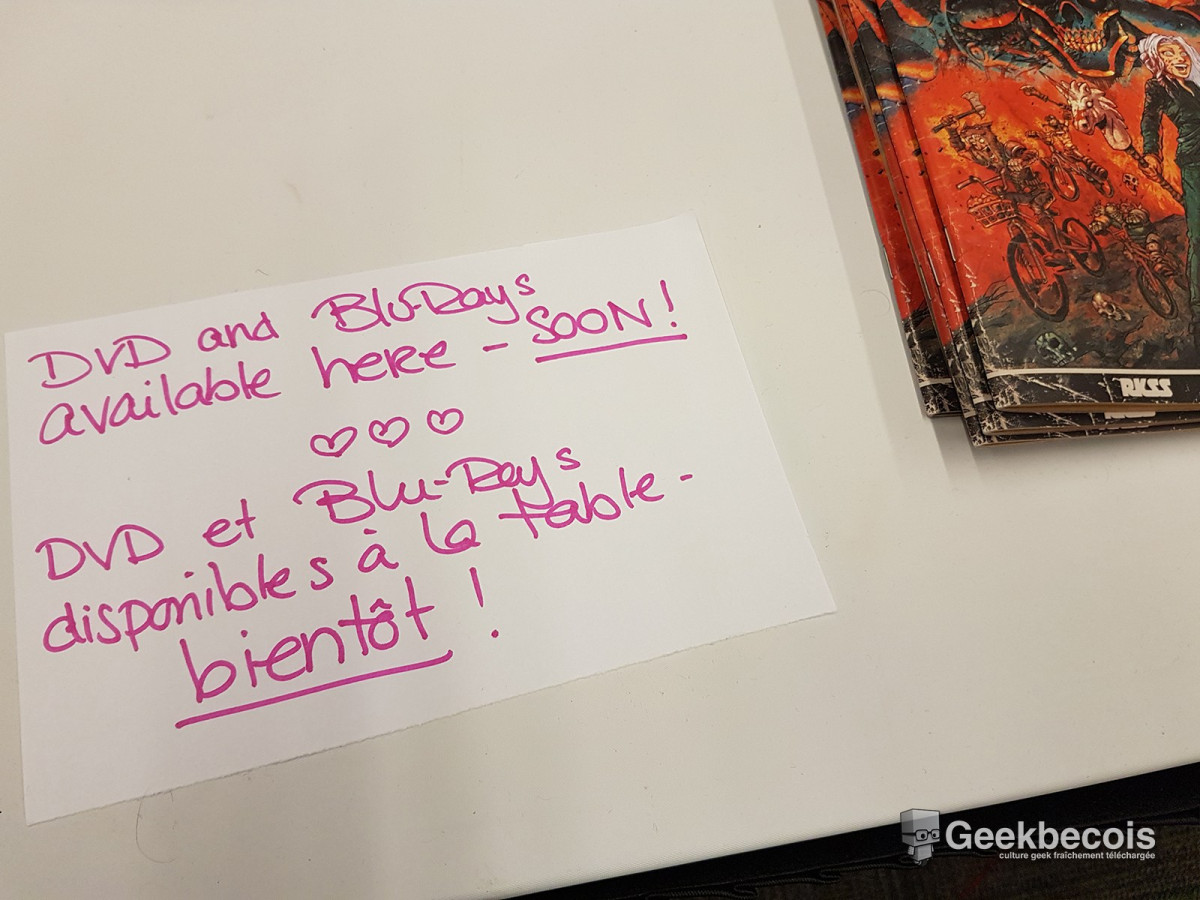 DVD and Blu-Rays
available here - SOON!
DVD et Blu-Rays
disponibles à la table -
bientôt !
RKSS
Geekbecois
culture geek fraîchement téléchargée